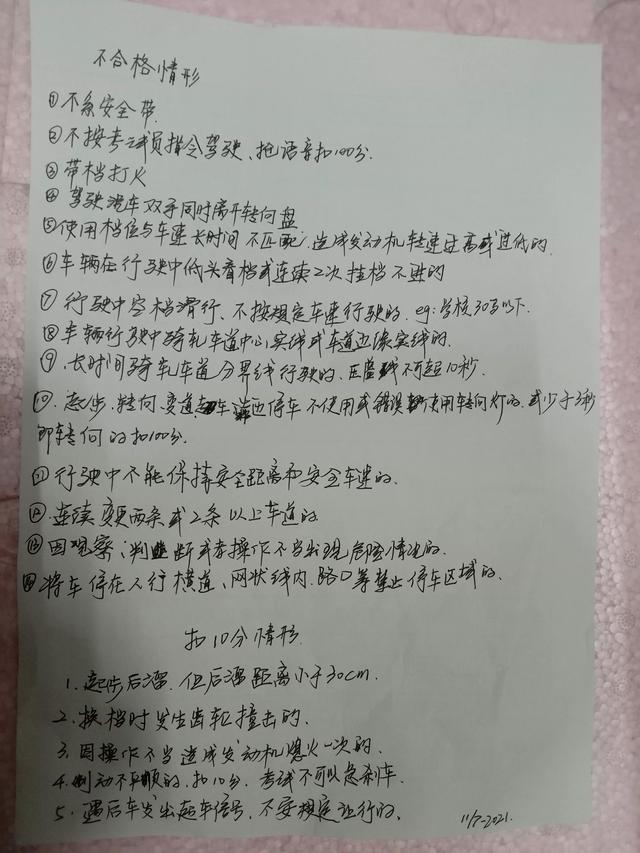 不合格情形
①不系安全带.
②不按考试员指令驾驶、抢语音扣100分.
③带档打火
④驾驶汽车双手同时离开转向盘
⑤使用档位与车速长时间不匹配,造成发动机转速过高或过低的.
⑥车辆在行驶中低头看档或连续2次挂档不进的
⑦行驶中空档滑行、不按规定车速行驶的. eg:学校30码以下.
⑧车辆行驶中骑轧车道中心实线或车道边缘实线的.
⑨.长时间骑轧车道分界线行驶的、压线不可超10秒.
⑩.起步、转向、变道、超车、靠边停车不使用或错误使用转向灯的.或少于3秒
即转向的扣100分.
⑪行驶中不能保持安全距离和安全车速的.
⑫.连续变更两条或2条以上车道的.
⑬因观察、判断或者操作不当出现危险情况的.
⑭将车停在人行横道、网状线内.路口等禁止停车区域的.
扣10分情形
1.起步后溜.但后溜距离小于30cm.
2.换档时发生齿轮撞击的.
3.因操作不当造成发动机熄火一次的.
4.制动不平顺的.扣10分.考试不可以急刹车.
5.遇后车发出超车信号,不按规定让行的.
11/7-2021.